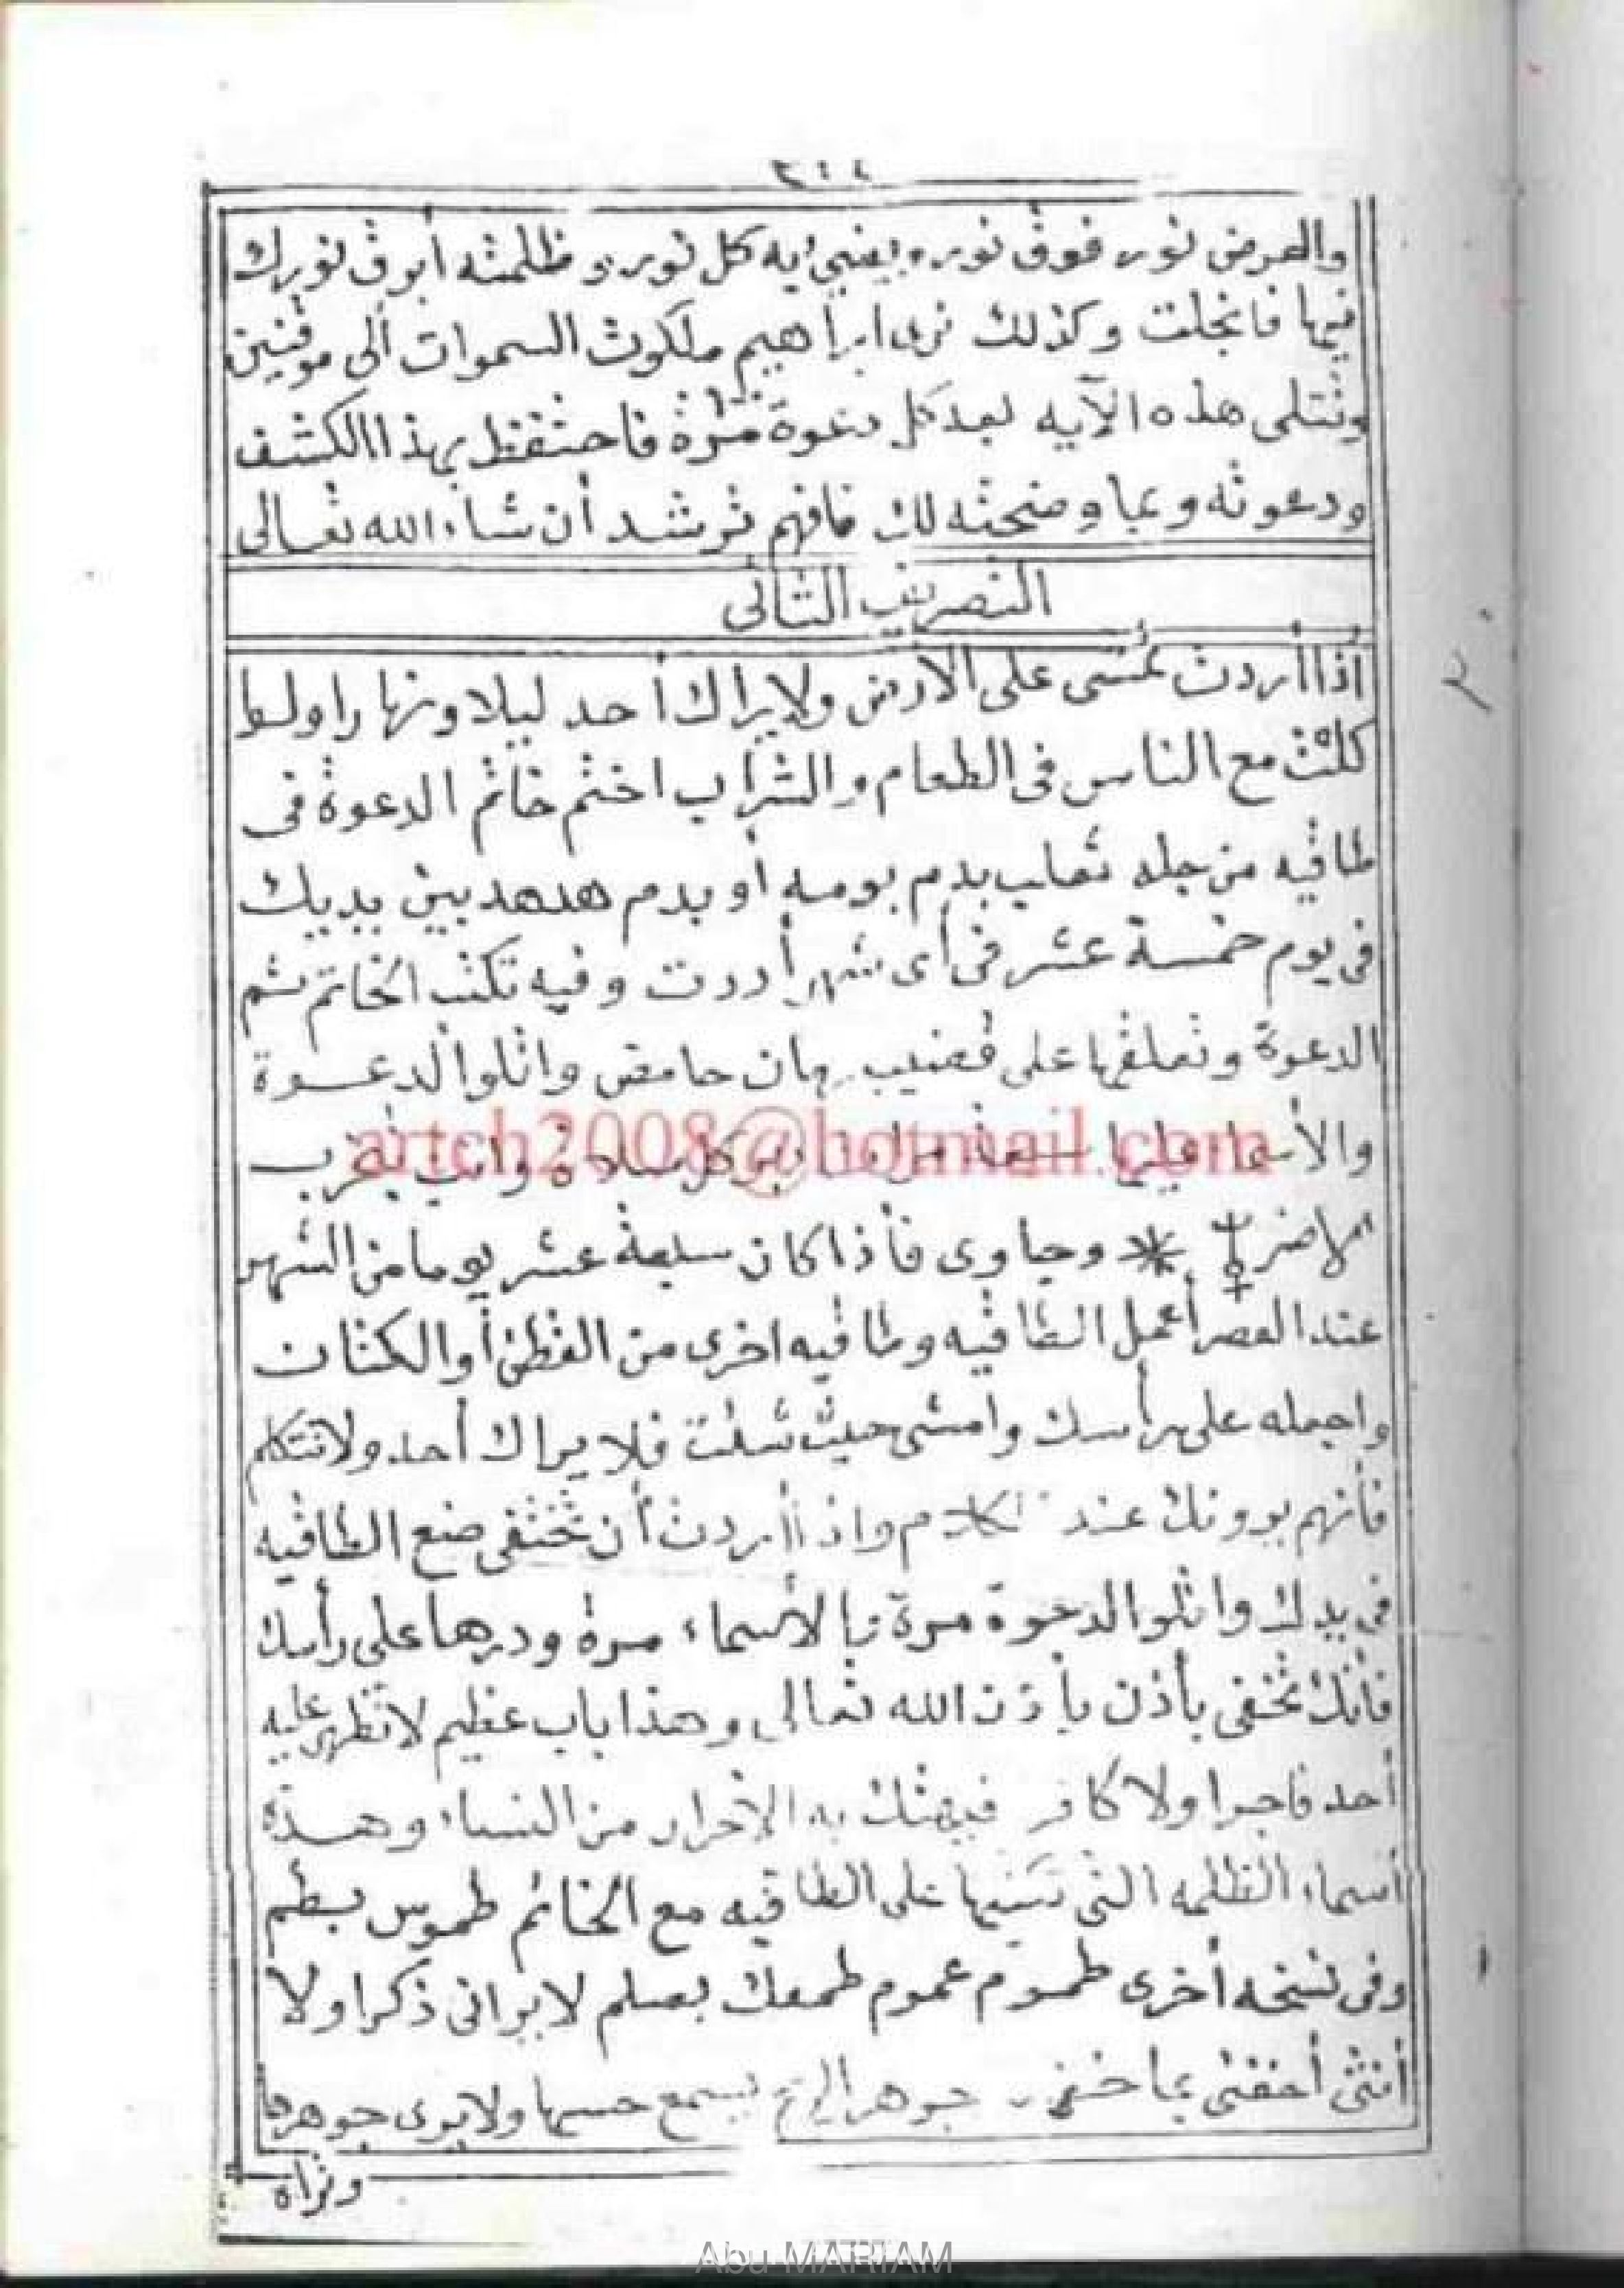 والعرض نور فوق نوره ويضيئ به كل نور و ظلمته أبرق نورك
فيها فانجلت وكذلك نرى ابراهيم ملكوت السموات ألى موقنين
وتتلى هذه الآيه بعد كل دعوة مرة فاحتفظ بهذا الكشف
ودعوته وبما وضحته لك فافهم ترشد أن شاء الله تعالى
التصريف الثانى
أذا أردت تمشى على الأرض ولا يراك أحد ليلا ونهارا ولط
كلت مع الناس فى الطعام والشراب اختم خاتم الدعوة فى
طاقيه من جله ثعلب بدم بومه أو بدم هدهد بين يديك
فى يوم خمسة عشر فى أى شهر أردت وفيه تكتب الخاتم ثم
الدعوة وتعلقها على قضيب رمان حامض واتلوا الدعوة
والأسما عليها كل صلاة وانت
وجاوى فأذا كان سبعة عشر يوما من الشهر
عند العصر أعمل الطاقيه وطاقيه اخرى من القطن أو الكتان
واجعله على رأسك وامشى حيث شئت فلا يراك أحد ولا تتكلم
فأنهم يرونك عند الكلام واذا أردت أن تختفى ضع الطاقيه
فى يدك واتلوا الدعوة مرة بالأسماء مرة ودرها على رأسك
فأنك تخفى بأذن بأذن الله تعالى وهذا باب عظيم لا تظهر عليه
أحد فاجرا ولا كافر فيهتك به الأحرار من النساء وهذه
أسماء الظلمه التى تكتبها على الطاقيه مع الخاتم طموس بطم
وفى نسخه أخرى طموم عموم طمعك بعلم لا يرانى ذكرا ولا
أنثى أخفنى بما خفى جوهر الريح يسمع حسها ولا يرى جوهرها
وتراه
artch2008@hotmail.com
Abu-MARIAM